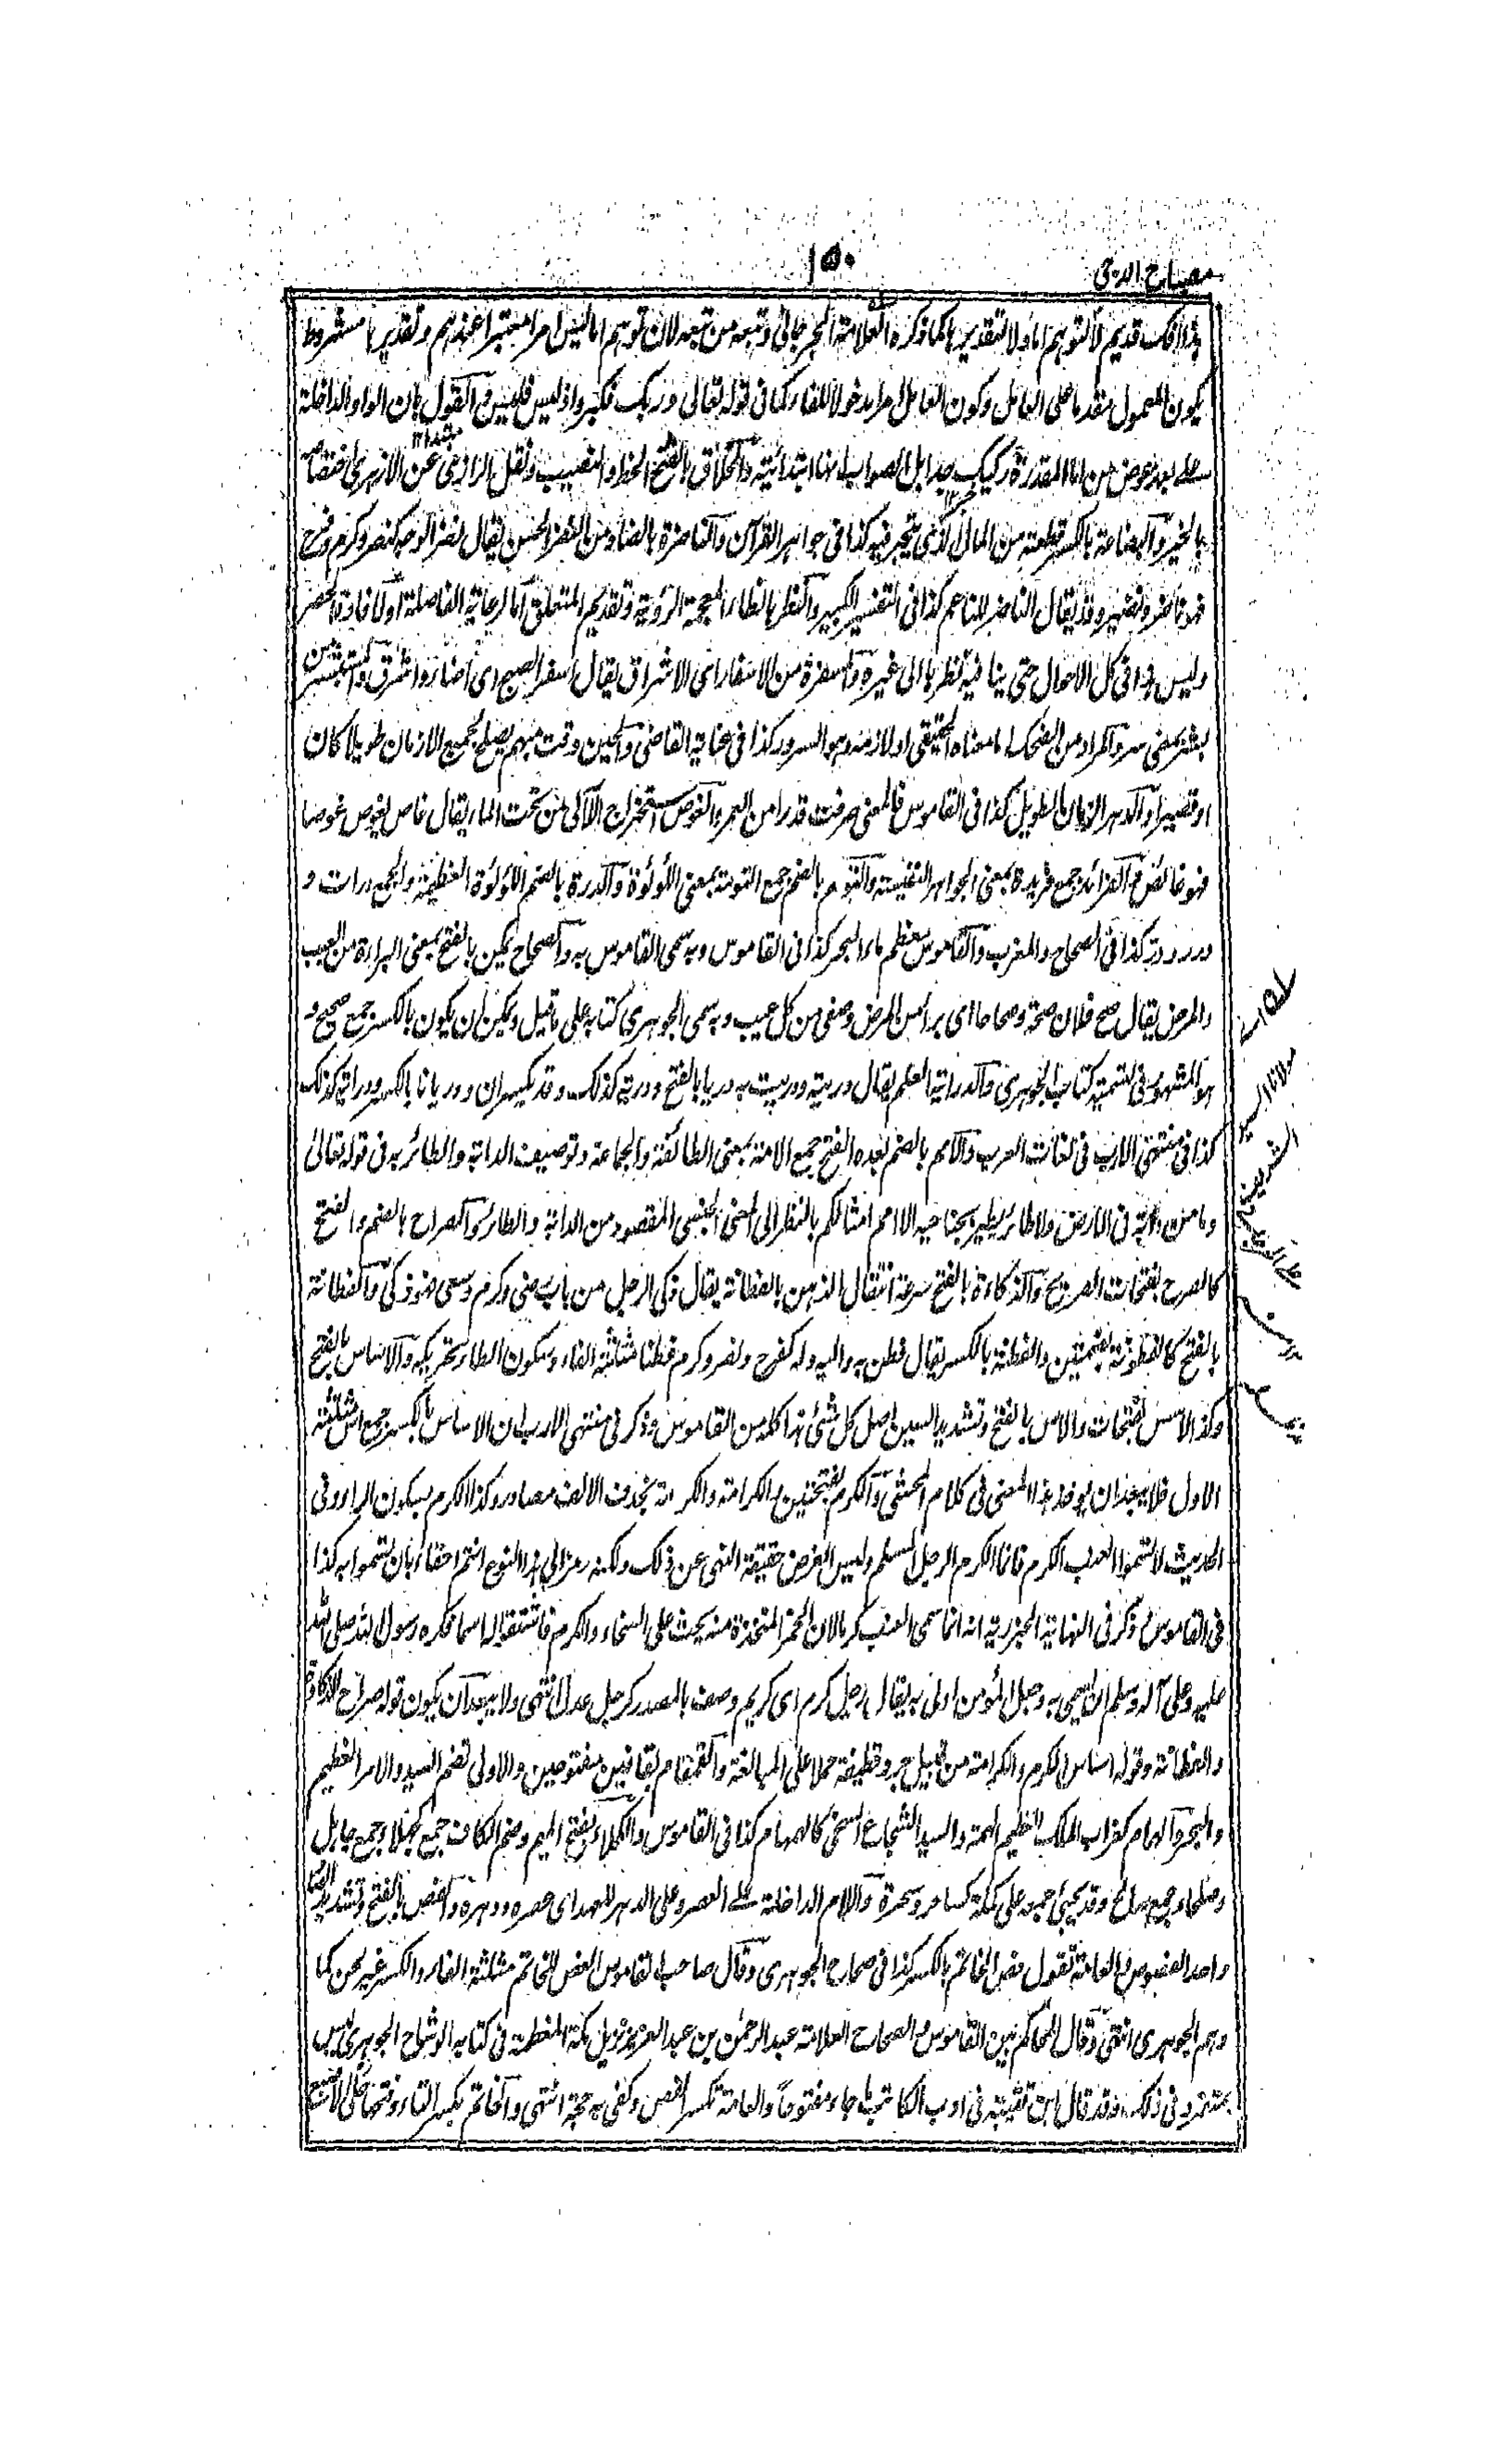 مصباح الدجى
١٥٠
هذا افك قديم لا لتوهم اما ولا لتقديرها كما ذكره العلامة الجرجاني وتبعه من تبعه لان توهم اما ليس امرا معتبرا عندهم وتقديرها مشروط
بكون المعمول مقدما على العامل وكون العامل امرا مدخولا للفاء كما في قوله تعالى وربك فكبر واذ ليس فليس والقول بان الواو الداخلة
على بعد عوض من اما المقدرة ركيك جدا بل الصواب انها ابتدائية والخلاق بالفتح الحظ والنصيب ونقل الرازي عن الازهري اختصاصه
بالخير والبضاعة بالكسر قطعة من المال الذي يتجر فيه كذا في جواهر القرآن والناضرة بالضاد من النضر الحسن يقال نضر الوجه كنصر وكرم وفرح
فهو ناضر ونضير وقد يقال الناضر للناعم كذا في التفسير الكبير والنظر بالظاء المعجمة الرؤية وتقديم المتعلق اما لرعاية الفاصلة او لافادة الحصر
وليس هذا في كل الاحوال حتى ينافيه نظرها الى غيره والمسفرة من الاسفار اي الاشراق يقال اسفر الصبح اي اضاء واشرق والمستبشر من
بشر بمعنى سر والمراد من الضحك اما معناه الحقيقي او لازمه وهو السرور كذا في عناية القاضي والحين وقت مبهم يصلح لجميع الازمان طويلا كان
او قصيرا والدهر الزمان الطويل كذا في القاموس فالمعنى صرفت قدرا من العمر والغوص استخراج اللآلي من تحت الماء يقال غاص يغوص غوصا
فهو غائص والفرائد جمع فريدة بمعنى الجواهر النفيسة والتوم بالضم جمع التومة بمعنى اللؤلؤة والدرة بالضم اللؤلؤة العظيمة والجمع درات و
درر ودر كذا في الصحاح والمغرب والقاموس معظم ماء البحر كذا في القاموس وبه سمي القاموس به والصحاح يمكن بالفتح بمعنى البراءة من العيب
والمرض يقال صح فلان صحة وصحاحا اي برأ من المرض وصفي من كل عيب وبه سمى الجوهري كتابه على ما قيل ويمكن ان يكون بالكسر جمع صحيح و
هو المشهور في تسمية كتاب الجوهري والدراية العلم يقال دريته ودريت به دريا بالفتح ودرية كذلك وقد يكسران ودريانا بالكسر ودراية كذلك
كذا في منتهى الارب في لغات العرب والامم بالضم بعده الفتح جمع الامة بمعنى الطائفة والجماعة وتوصيف الدابة والطائر به في قوله تعالى
وما من دابة في الارض ولا طائر يطير بجناحيه الا امم امثالكم بالنظر الى المعنى الجنسي المقصود من الدابة والطائر والصراح بالضم والفتح
كالصرح بفتحات الصريح والذكاءة بالفتح سرعة انتقال الذهن بالفطانة يقال ذكي الرجل من باب رضي وكرم وسعى فهو ذكي والفطانة
بالفتح كالفطونة بضمتين والفطنة بالكسر يقال فطن به واليه وله كفرح ونصر وكرم فطنا مثلثة الفاء وسكون الطاء وتحريكه والاساس بالفتح
وكذا الاسس بفتحات والاس بالفتح وتشديد السين اصل كل شيء هذا كله من القاموس وذكر في منتهى الارب ان الاساس بالكسر جمع اس مثلثة
الاول فلا يبعد ان يوخذ هذا المعنى في كلام المحشي والكرم بفتحتين والكرامة والكرمة بحذف الالف مصادر وكذا الكرم بسكون الراء وفي
الحديث لا تسموا العنب الكرم فانما الكرم الرجل المسلم وليس الغرض حقيقة النهي عن ذلك ولكنه رمز الى هذا النوع انتم احقاء بان تسموا به كذا
في القاموس وذكر في النهاية الجزرية انه انما سمي العنب كرما لان الخمر المتخذة منه يحث على السخاء والكرم فاشتقوا له اسما فكره رسول الله صلى الله
عليه وعلى آله وسلم ان يسمى به وجعل المؤمن اولى به يقال رجل كرم اي كريم وصف بالمصدر كرجل عدل انتهى ولا يبعد ان يكون قوله صراح الذكاوة
والفطانة وقوله اساس الكرم والكرامة من قبيل جرد قطيفة حملا على المبالغة والقمقام بقافين مفتوحين والاولى تضم السيد والامر العظيم
والبحر والهمام كغراب الملك العظيم الهمة والسيد الشجاع السخي كالهمهام كذا في القاموس والكملاء بفتح الميم وضم الكاف جمع كجهلاء جمع جاهل
وصلحاء جمع صالح وقد يجيئ جمعه على كملة كساحر وسحرة واللام الداخلة على العصر وعلى الدهر للعهد اي عصره ودهره والفص بالفتح وتشديد الصاد
واحد الفصوص والعامة تقول فص الخاتم بالكسر كذا في صحاح الجوهري وقال صاحب القاموس الفص للخاتم مثلثة الفاء والكسر غير لحن كما
وهم الجوهري انتهى وقال المحاكم بين القاموس والصحاح العلامة عبد الرحمن بن عبد العزيز نزيل مكة المعظمة في كتابه الوشاح الجوهري ليس
بمتفرد في ذلك فقد قال ابن قتيبة في ادب الكاتب باب ما جاء مفتوحا والعامة تكسر الفص وكفى به حجة انتهى والخاتم بكسر التاء وفتحها حلي الاصبع
مولانا السيد
الشريف